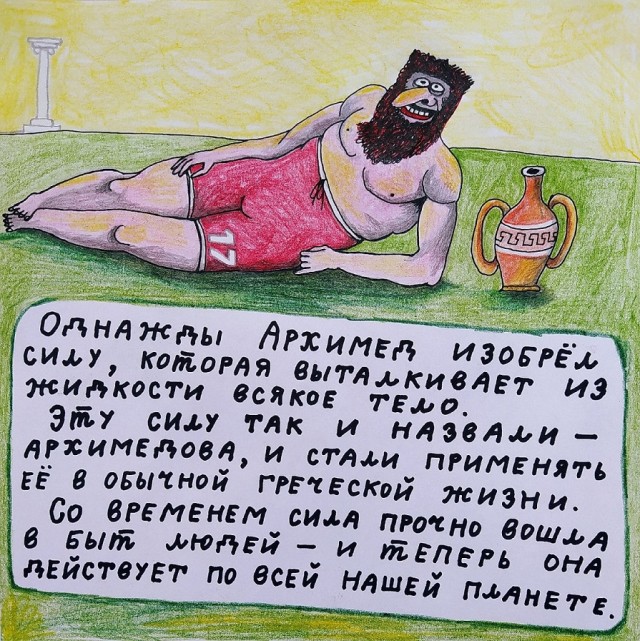 17
Однажды Архимед изобрёл
силу, которая выталкивает из
жидкости всякое тело.
Эту силу так и назвали –
Архимедова, и стали применять
её в обычной греческой жизни.
Со временем сила прочно вошла
в быт людей – и теперь она
действует по всей нашей планете.